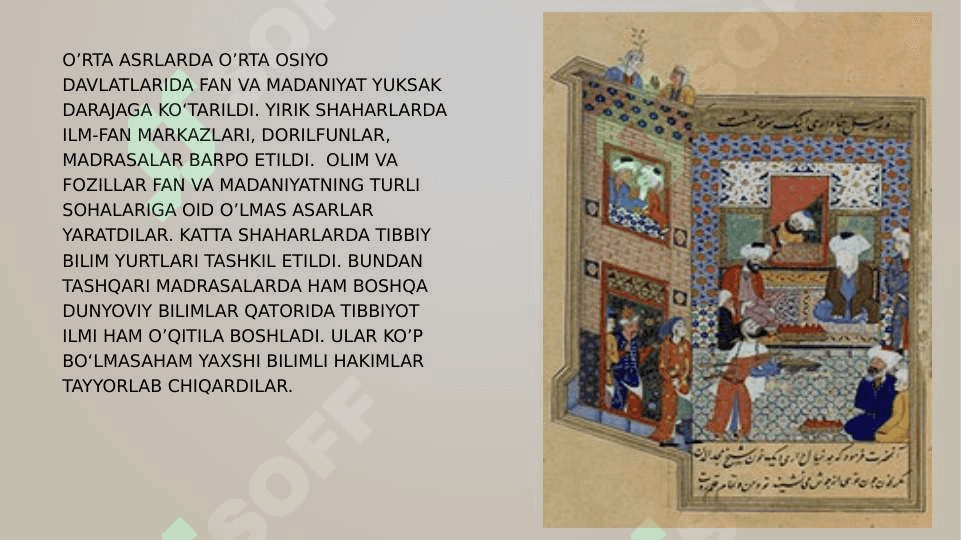 O’RTA ASRLARDA O’RTA OSIYO
DAVLATLARIDA FAN VA MADANIYAT YUKSAK
DARAJAGA KO‘TARILDI. YIRIK SHAHARLARDA
ILM-FAN MARKAZLARI, DORILFUNLAR,
MADRASALAR BARPO ETILDI.  OLIM VA
FOZILLAR FAN VA MADANIYATNING TURLI
SOHALARIGA OID O’LMAS ASARLAR
YARATDILAR. KATTA SHAHARLARDA TIBBIY
BILIM YURTLARI TASHKIL ETILDI. BUNDAN
TASHQARI MADRASALARDA HAM BOSHQA
DUNYOVIY BILIMLAR QATORIDA TIBBIYOT
ILMI HAM O’QITILA BOSHLADI. ULAR KO’P
BO‘LMASAHAM YAXSHI BILIMLI HAKIMLAR
TAYYORLAB CHIQARDILAR.
SOFF
SOFF
SOFF
SOFF